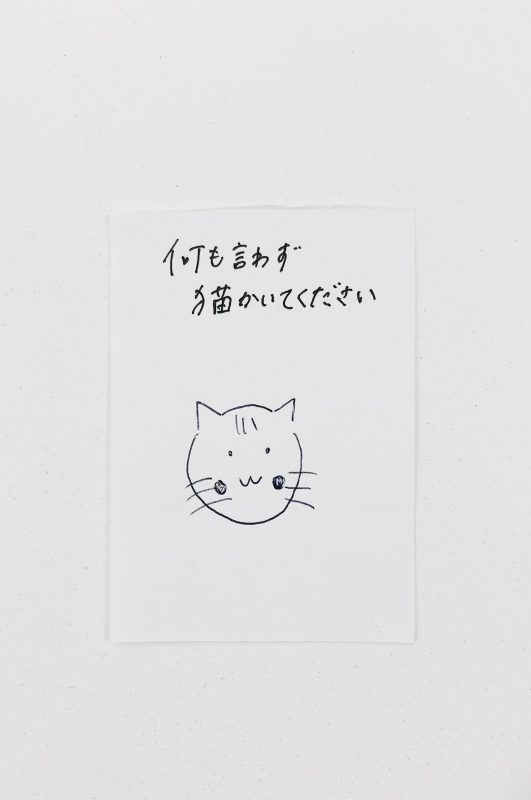 何も言わず
猫かいてください